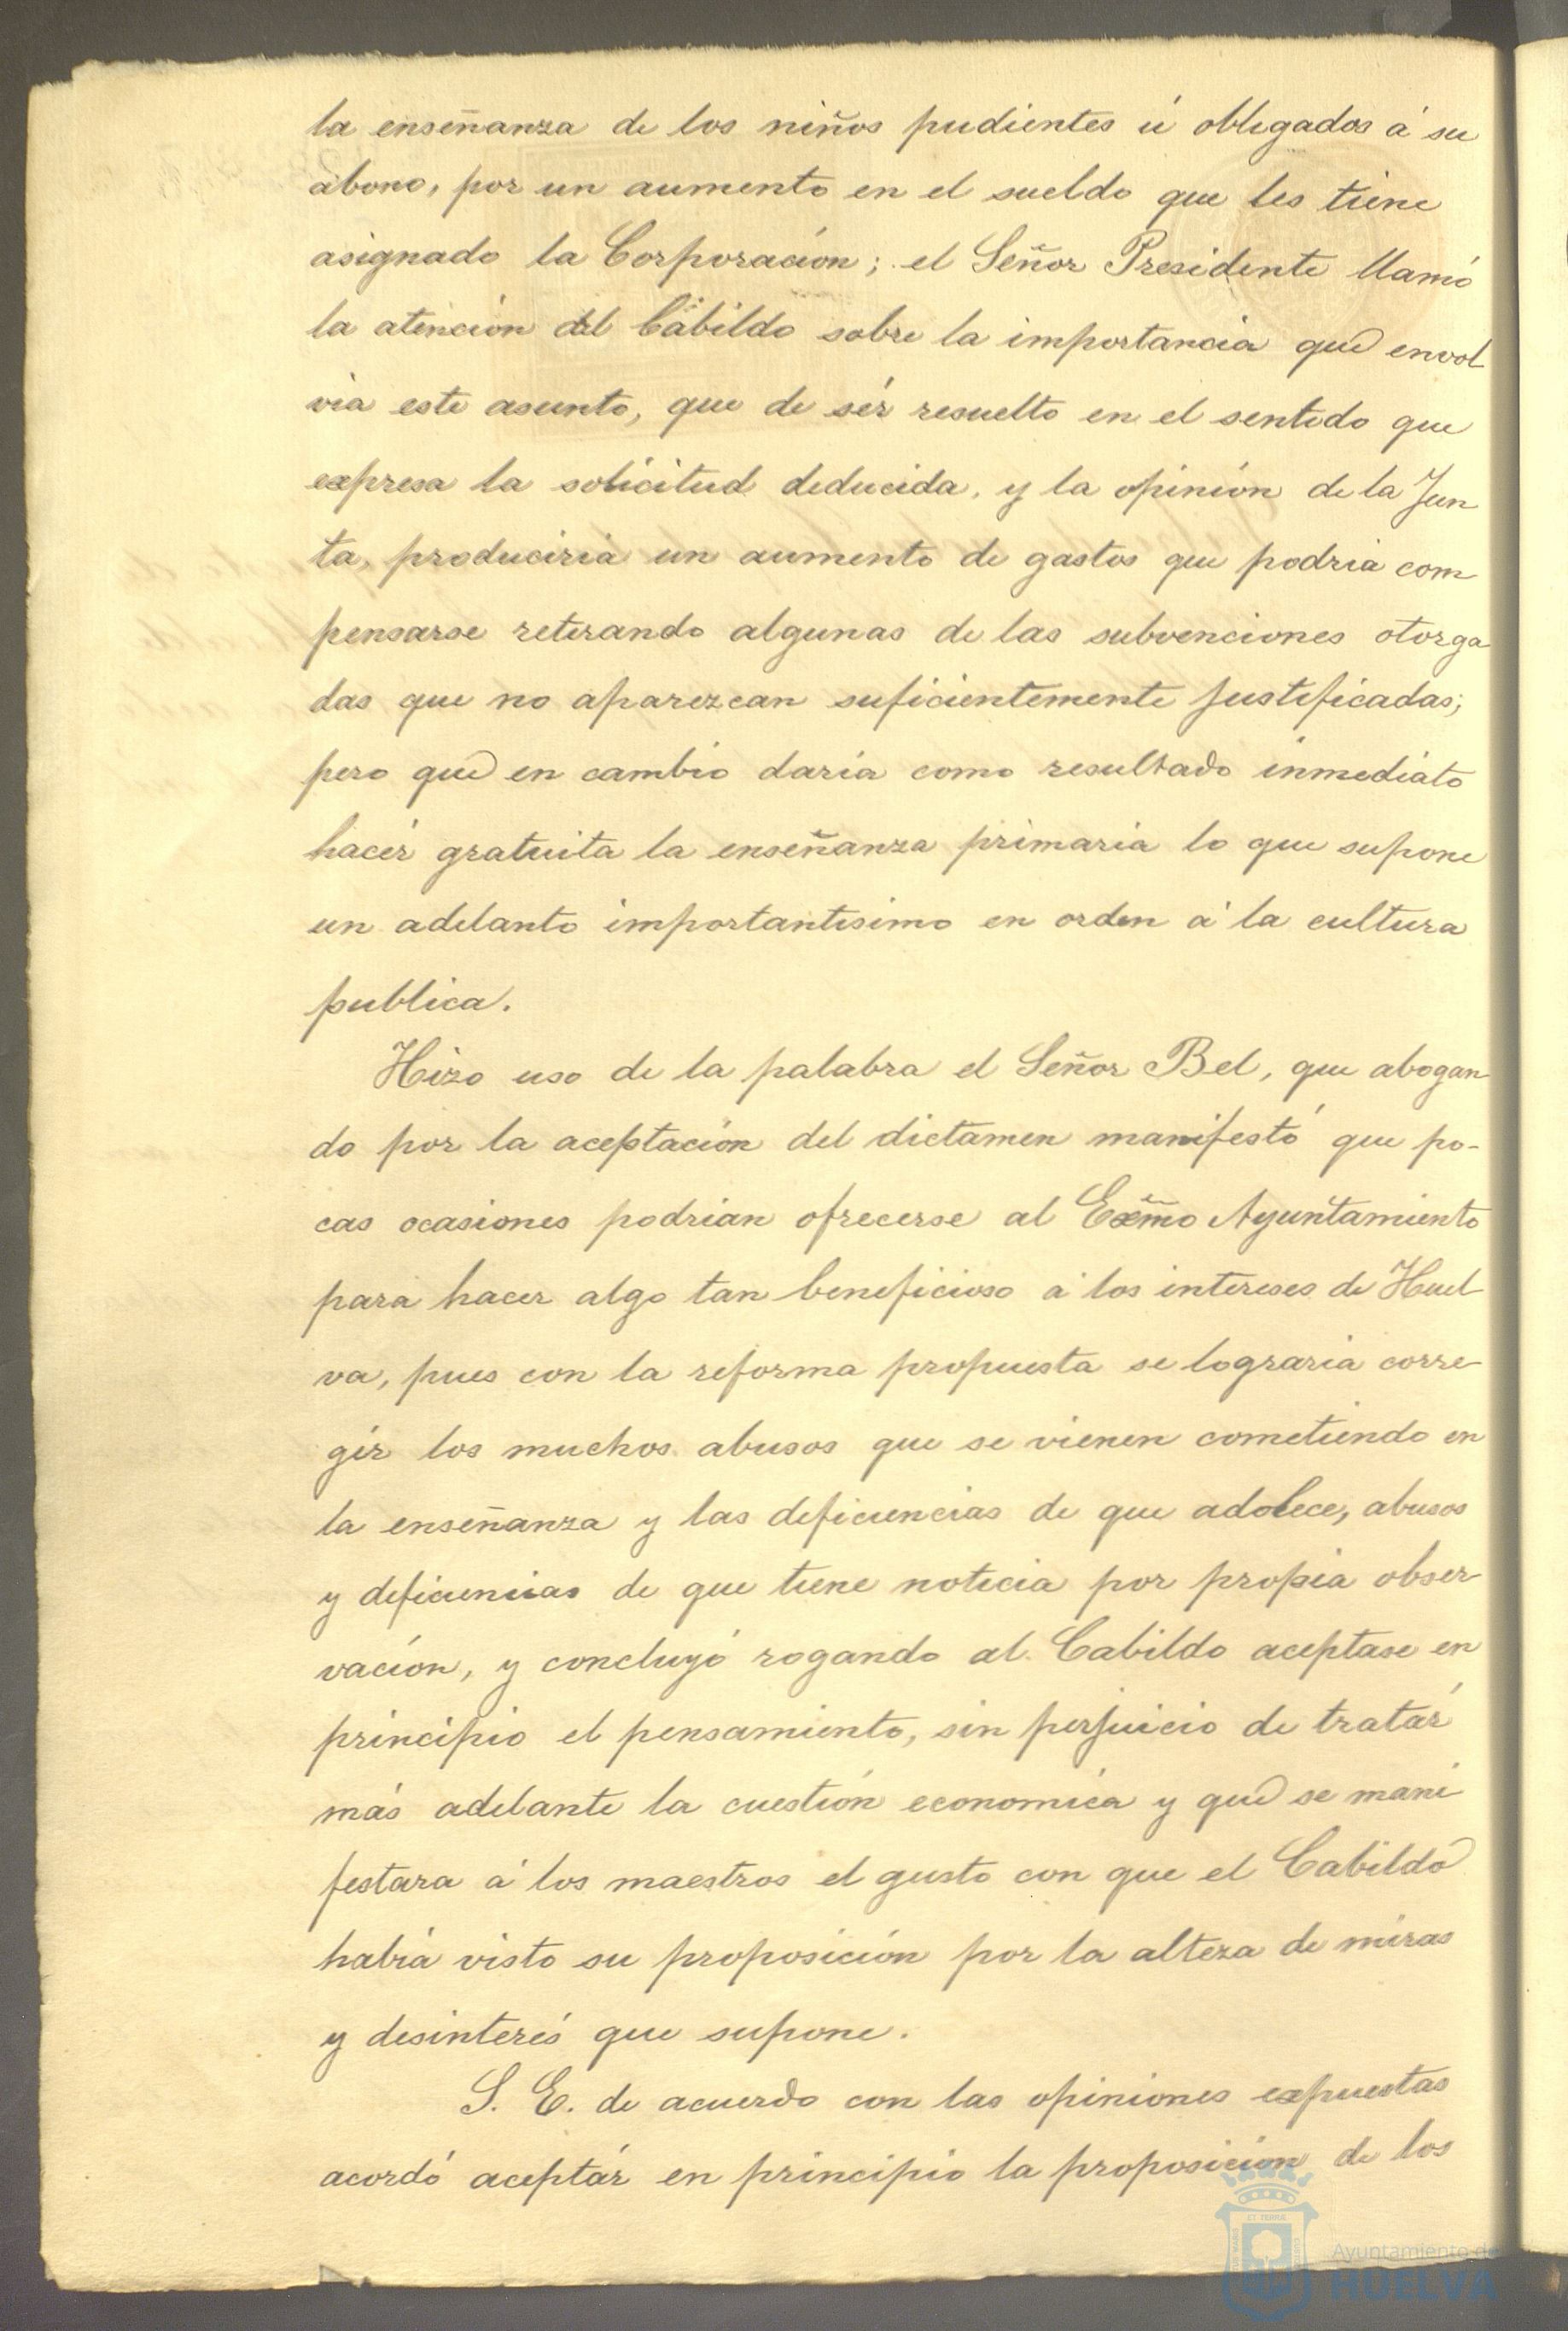 la enseñanza de los niños pudientes ú obligados á su
abono, por un aumento en el sueldo que les tiene
asignado la Corporación; el Señor Presidente llamó
la atención del Cabildo sobre la importancia que envol
via este asunto, que de sér resuelto en el sentido que
expresa la solicitud deducida, y la opinión de la Jun
ta, produciria un aumento de gastos que podria com
pensarse retirando algunas de las subvenciones otorga
das que no aparezcan suficientemente justificadas;
pero que en cambio daria como resultado inmediato
hacér gratuita la enseñanza primaria lo que supone
un adelanto importantisimo en orden á la cultura
publica.
Hizo uso de la palabra el Señor Bel, que abogan
do por la aceptación del dictamen manifestó que po-
cas ocasiones podrian ofrecerse al Exmo Ayuntamiento
para hacer algo tan beneficioso á los intereses de Huel
va, pues con la reforma propuesta se lograria corre-
gir los muchos abusos que se vienen cometiendo en
la enseñanza y las deficiencias de que adolece, abusos
y deficiencias de que tiene noticia por propia obser-
vación, y concluyó rogando al Cabildo aceptase en
principio el pensamiento, sin perjuicio de tratár
más adelante la cuestión economica y que se mani
festara á los maestros el gusto con que el Cabildo
habia visto su proposición por la alteza de miras
y desinterés que supone.
S. E. de acuerdo con las opiniones expuestas
acordó aceptár en principio la proposición de los
Ayuntamiento de
HUELVA